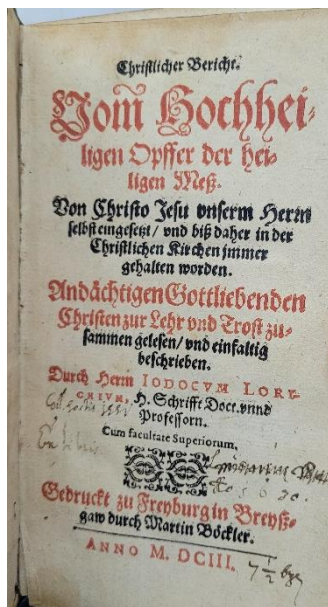 Christlicher Bericht.
Vom̃ Hochhei-
ligen Opffer der hei-
ligen Meß.
Von Christo Jesu vnserm Herrn
selbst eingesetzt/ vnd biß daher in der
Christlichen Kirchen jmmer
gehalten worden.
Andächtigen Gottliebenden
Christen zur Lehr vnd Trost zu-
sammen gelesen/ vnd einfaltig
beschrieben.
Durch Herrn IODOCVM LORI-
CHIVM, H. Schrifft Doct. vnnd
Professorn.
Cum facultate Superiorum,
Ex libris
Gedruckt zu Freyburg in Breyß-
gaw durch Martin Böckler.
ANNO M. DCIII.